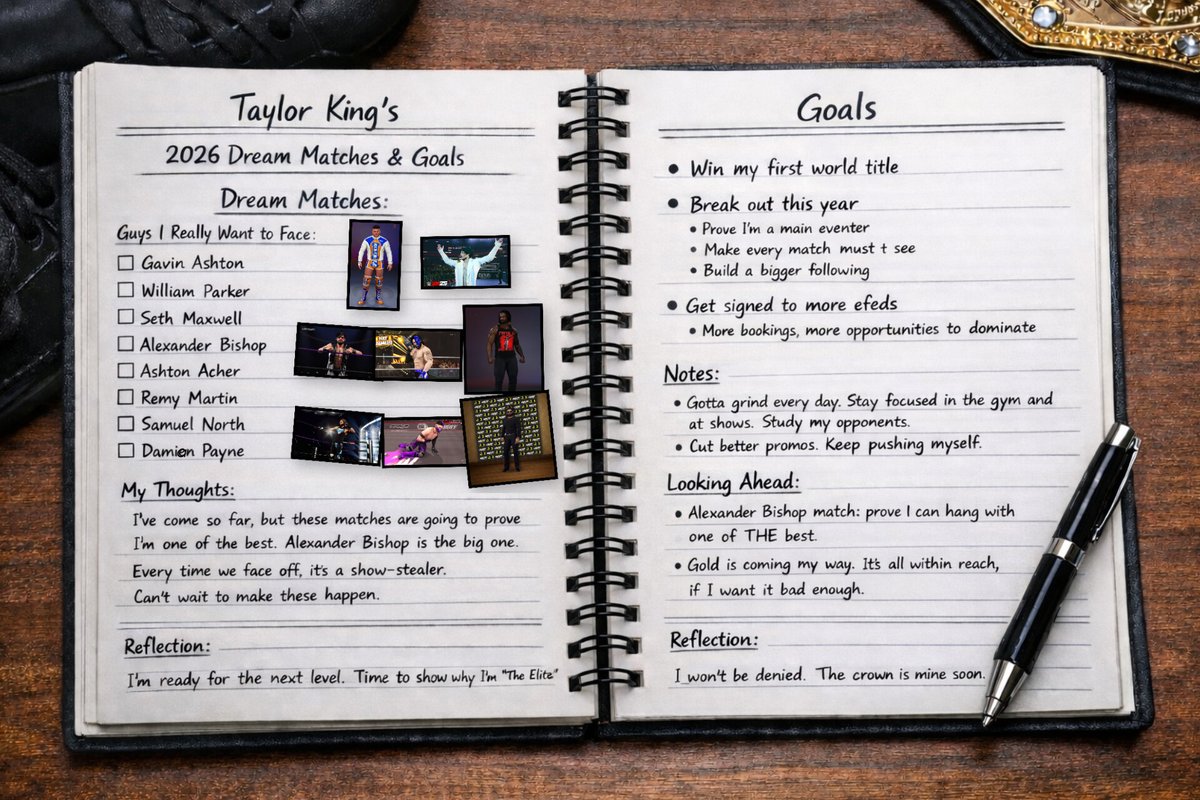 Taylor King's
2026 Dream Matches & Goals
Dream Matches:
Guys I Really Want to Face:
Gavin Ashton
William Parker
Seth Maxwell
Alexander Bishop
Ashton Acher
Remy Martin
Samuel North
Damien Payne
My Thoughts:
I've come so far, but these matches are going to prove
I'm one of the best. Alexander Bishop is the big one.
Every time we face off, it's a show-stealer.
Can't wait to make these happen.
Reflection:
I'm ready for the next level. Time to show why I'm "The Elite"
Goals
Win my first world title
Break out this year
Prove I'm a main eventer
Make every match must t see
Build a bigger following
Get signed to more efeds
More bookings, more opportunities to dominate
Notes:
Gotta grind every day. Stay focused in the gym and
at shows. Study my opponents.
Cut better promos. Keep pushing myself.
Looking Ahead:
Alexander Bishop match: prove I can hang with
one of THE best.
Gold is coming my way. It's all within reach,
if I want it bad enough.
Reflection:
I won't be denied. The crown is mine soon.